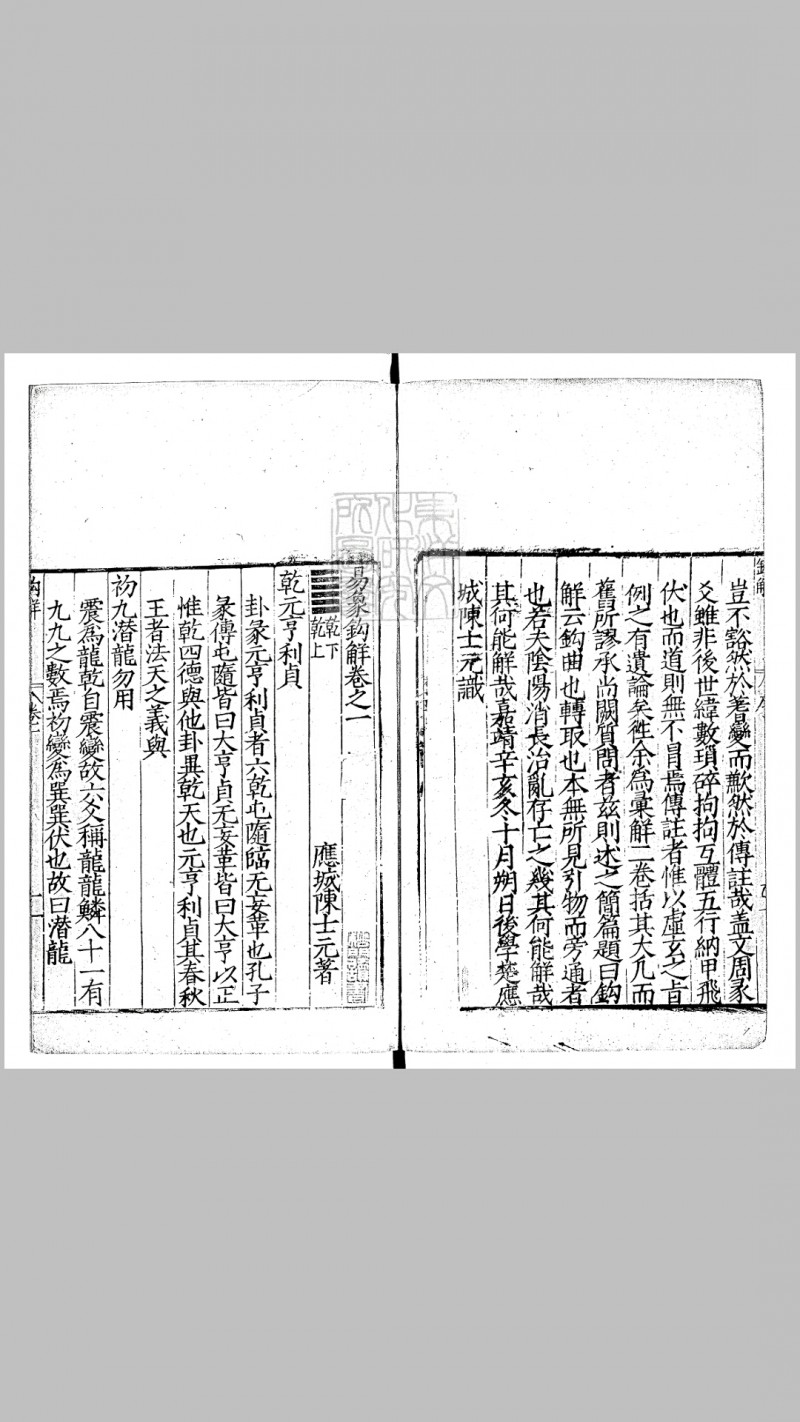 豈不豁然於著變而歉然於傳註哉蓋文周彖
爻雖非後世緯數瑣碎拘拘互體五行納甲飛
伏也而道則無不冐焉傳註者惟以虛玄之旨
例之有遺論矣徃余為彙解二卷括其大凡而
舊所謬承尚闕質問者玆則述之簡篇題曰鈎
解云鈎曲也轉取也本無所見引物而旁通者
也若夫陰陽消長治亂存亡之幾其何能解哉
其何能解哉嘉靖辛亥冬十月朔日後學楚應
城陳士元識
易象鈎解卷之一
應城陳士元著
乾下
乾上
乾元亨利貞
卦彖元亨利貞者六乾屯隨臨无妄革也孔子
彖傳屯隨皆曰大亨貞无妄革皆曰大亨以正
惟乾四德與他卦異乾天也元亨利貞其春秋
王者法天之義與
初九潛龍勿用
震為龍乾自震變故六爻稱龍龍鱗八十一有
九九之數焉初變為巽巽伏也故曰潛龍